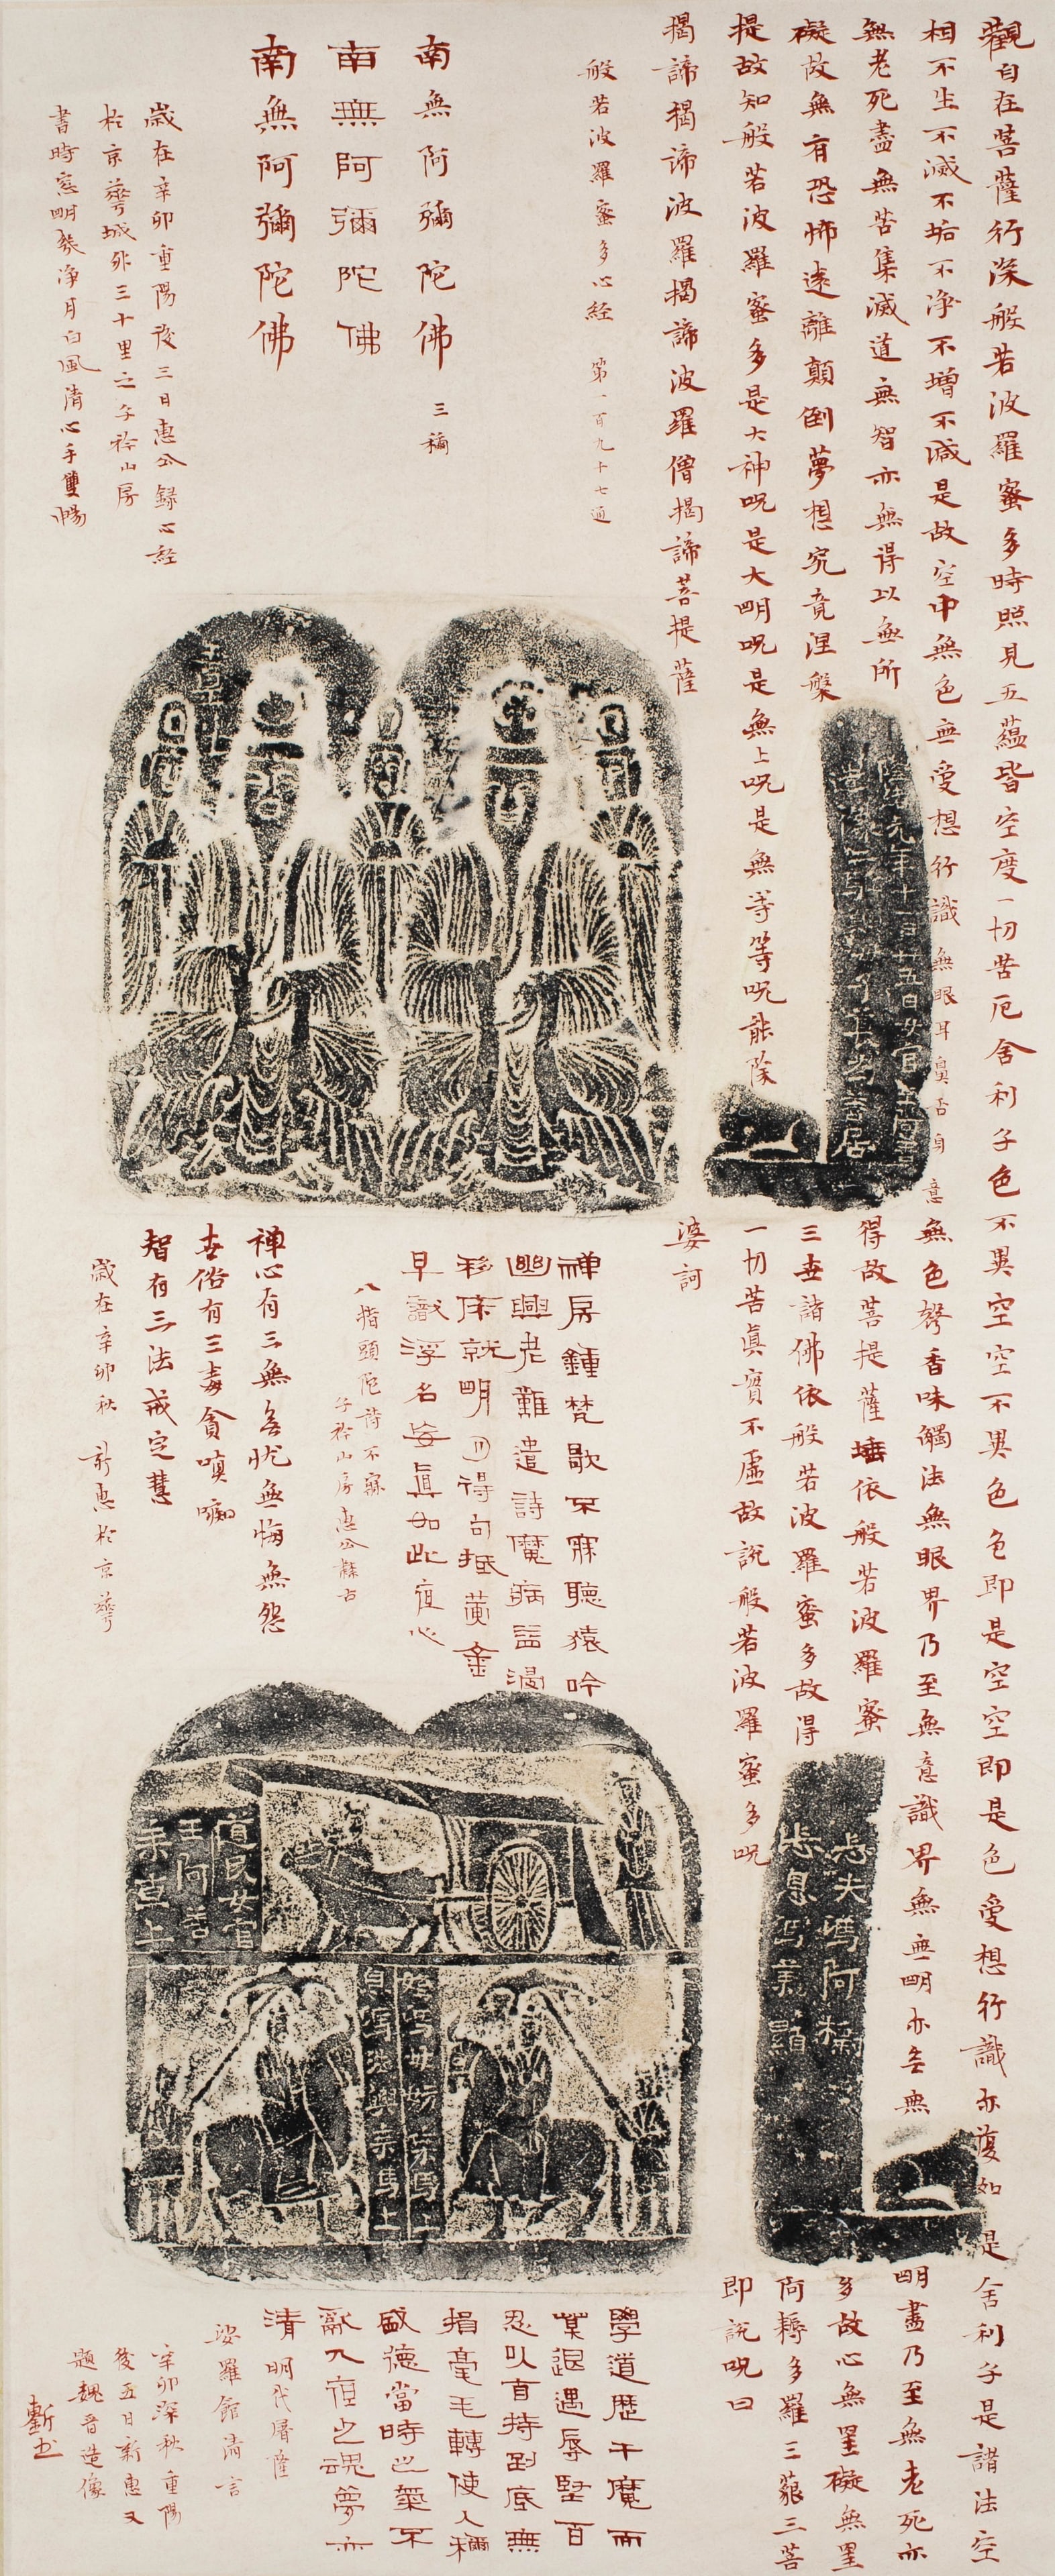 觀自在菩薩行深般若波羅蜜多時照見五蘊皆空度一切苦厄舍利子色不異空空不異色色即是空空即是色受想行識亦復如是舍利子是諸法空
相不生不滅不垢不淨不增不減是故空中無色無受想行識無眼耳鼻舌身意無色聲香味觸法無眼界乃至無意識界無無明亦無無明盡乃至無老死亦
無老死盡無苦集滅道無智亦無得以無所得故菩提薩埵依般若波羅蜜多故心無罣礙無罣
礙故無有恐怖遠離顛倒夢想究竟涅槃三世諸佛依般若波羅蜜多故得阿耨多羅三藐三菩
提故知般若波羅蜜多是大神呪是大明呪是無上呪是無等等呪能除一切苦真實不虛故說般若波羅蜜多呪即說呪曰
揭諦揭諦波羅揭諦波羅僧揭諦菩提薩婆訶
般若波羅蜜多心經 第一百九十七通
南無阿彌陀佛 三稱
南無阿彌陀佛
南無阿彌陀佛
歲在辛卯重陽後三日惠公錄心經
於京華城外三十里之子衿山房
書時窓明幾淨月白風清心手雙暢
元年十一月廿五日女官王阿善
禪房鍾梵歇不寐聽猿吟
幽興老難遣詩魔病益侵
移床就明月得句抵黃金
早識浮名妄真如此夜心
八指頭陀詩不寐
子衿山房惠公隸古
禪心有三無無憂無悔無怨
世俗有三毒貪嗔痴
智有三法戒定慧
歲在辛卯秋 新惠於京華
忘夫馮阿標
忘息馮義顯
道民女官
王阿善
乘草上
馮法興乘馬上
學道歷千魔而
莫退遇辱堅百
忍以自持到底無
損毫毛轉使人稱
盛德當時之氣不
亂入夜之魂夢亦
清 明代屠隆
娑羅館清言
辛卯深秋重陽
後五日新惠又
題魏晉造像